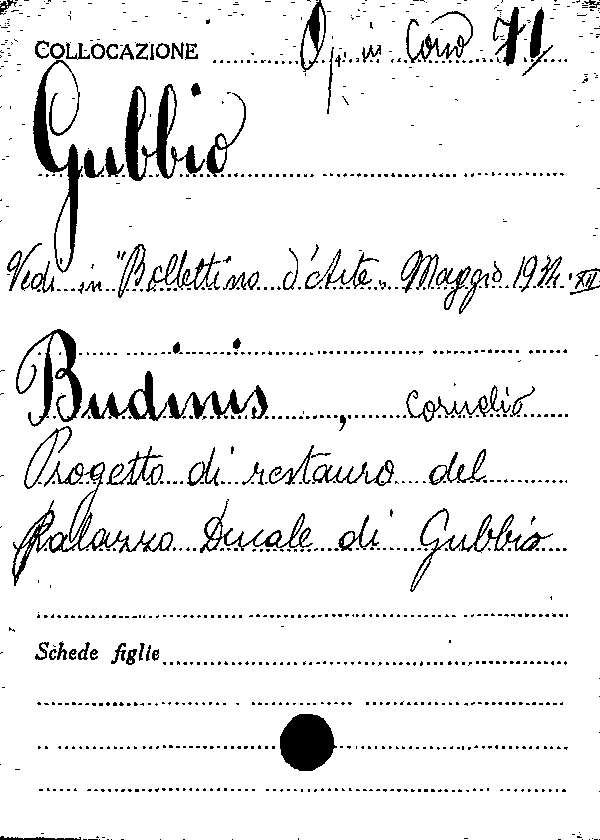 COLLOCAZIONE Op. in Corso 71
Gubbio
Vedi in "Bollettino d'Arte" Maggio 1934. XII
Budinis, Cornelio
Progetto di restauro del
Palazzo Ducale di Gubbio
Schede figlie